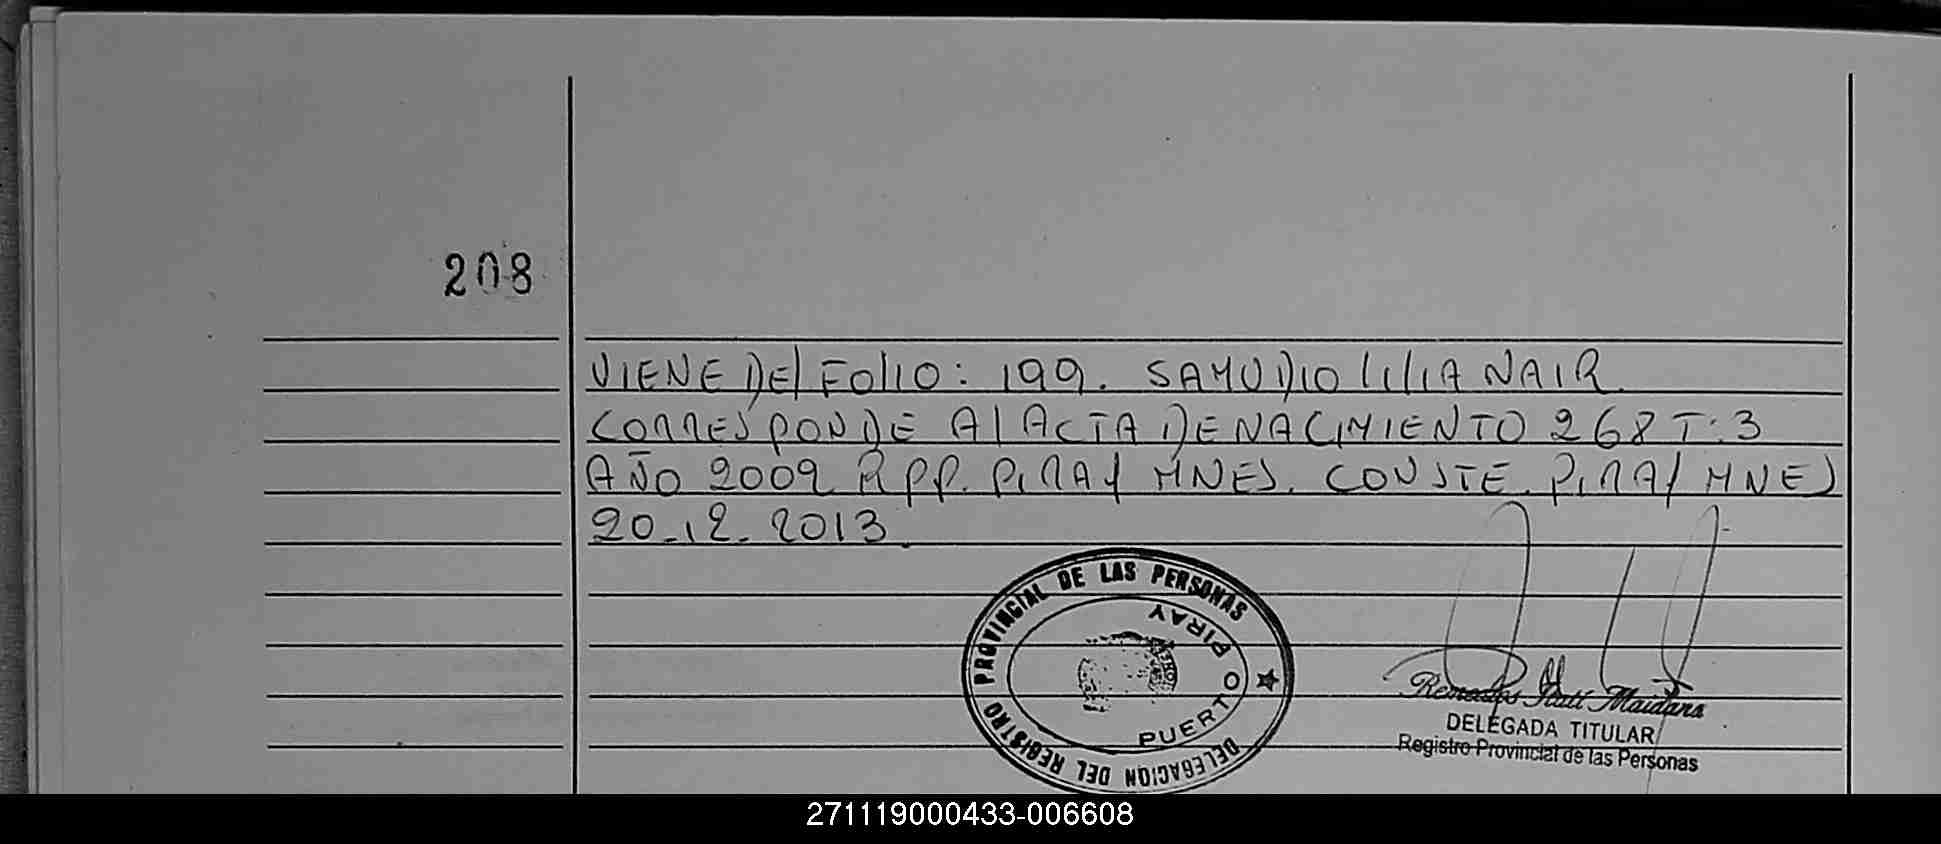 208
VIENE DEL FOLIO: 199. SAMUDIO LILIA NAIR.
CORRESPONDE AL ACTA DE NACIMIENTO 268 T: 3
AÑO 2009 RPP. PIRAY MNES. CONSTE. PIRAY MNES
20.12.2013.
DELEGACION DEL REGISTRO PROVINCIAL DE LAS PERSONAS
PUERTO PIRAY
Remedios Itatí Maidana
DELEGADA TITULAR
Registro Provincial de las Personas
271119000433-006608